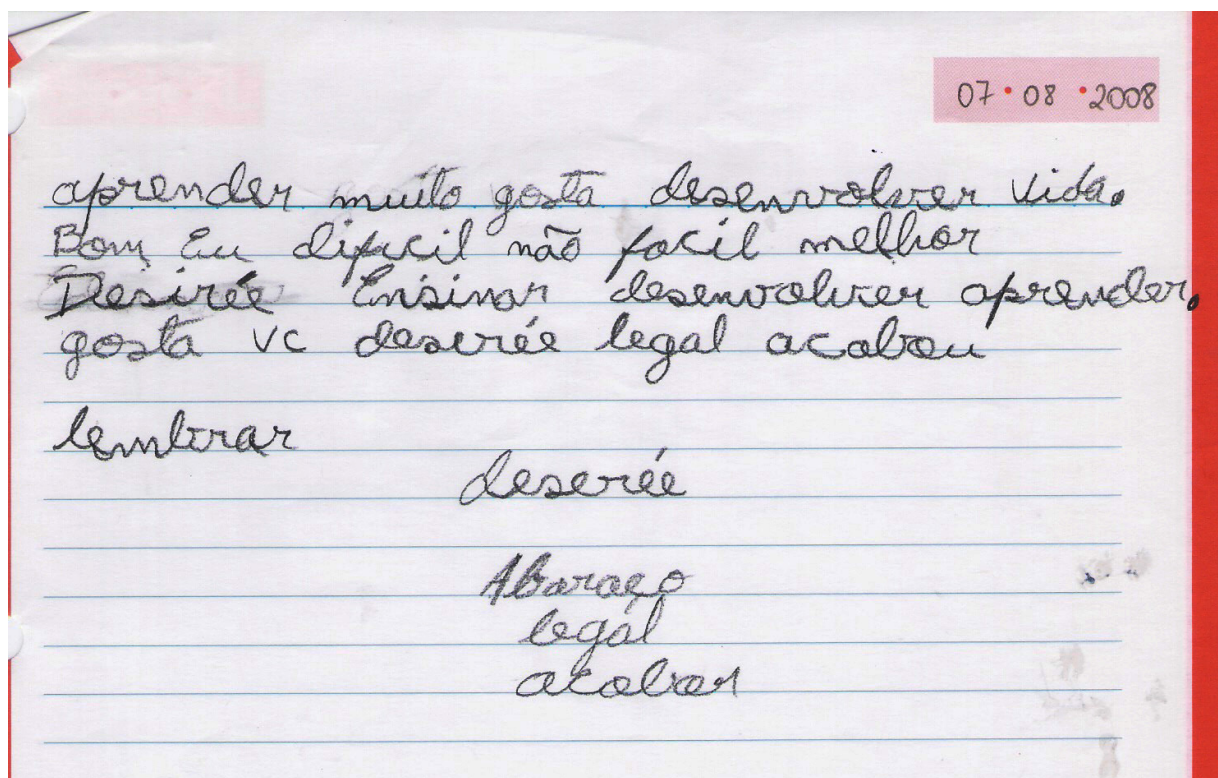 07 • 08 • 2008
aprender muito gosta desenvolver vida.
Bom Eu dificil não facil melhor
Desirée Ensinar desenvolver aprender.
gosta vc deserée legal acabou
lembrar
deserée
Abaraço
legal
acabar